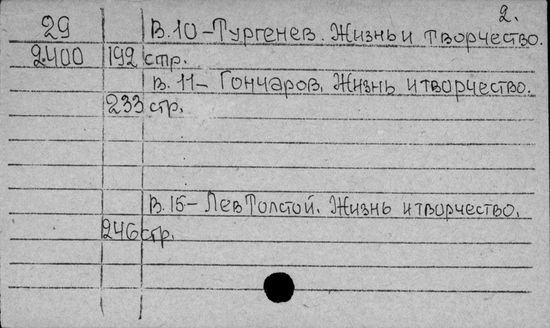 2.
29 В.10-Тургенев. Жизнь и творчество.
2400 192 стр.
В. 11- Гончаров. Жизнь и творчество.
233 стр.
В.15- Лев Толстой. Жизнь и творчество.
246 стр.